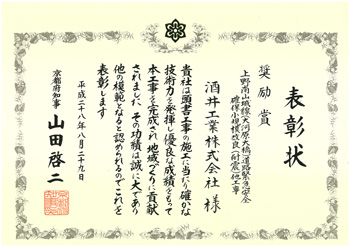 表彰状
奨励賞
上野南山城線大河原大橋道路緊急安全
確保小規模改良(耐震)他工事
酒井工業株式会社 様
貴社は頭書工事の施工に当たり確かな
技術力を発揮し優良な成績をもって
本工事を完成され地域づくりに貢献
されました その功績は誠に大であり
他の模範となると認められるのでこれを
表彰します
平成二十八年八月二十九日
京都府知事 山田啓二